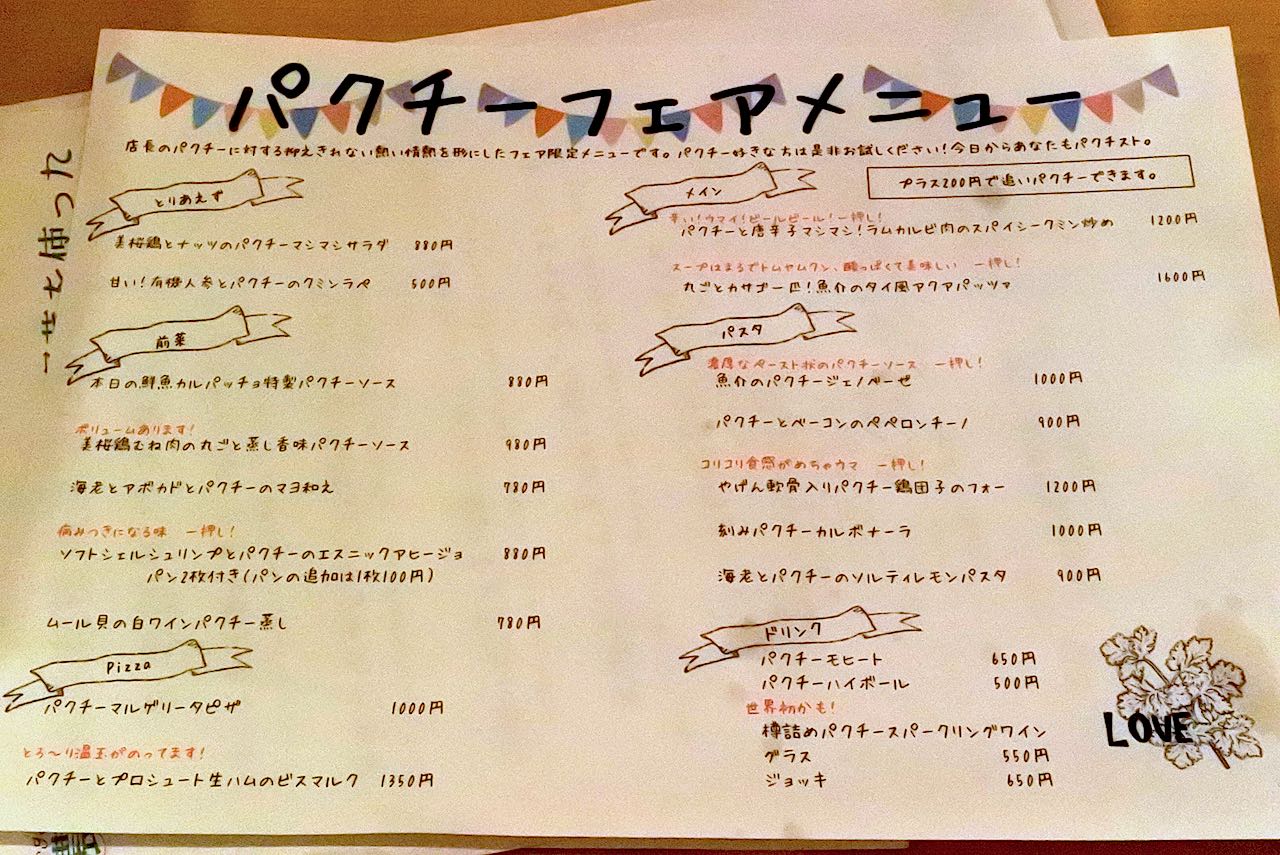 パクチーフェアメニュー
店長のパクチーに対する抑えきれない熱い情熱を形にしたフェア限定メニューです。パクチー好きな方は是非お試しください！今日からあなたもパクチスト。
とりあえず
美桜鶏とナッツのパクチーマシマシサラダ 880円
甘い！有機人参とパクチーのクミンラペ 500円
前菜
本日の鮮魚カルパッチョ特製パクチーソース 880円
ボリュームあります！
美桜鶏むね肉の丸ごと蒸し香味パクチーソース 980円
海老とアボカドとパクチーのマヨ和え 780円
病みつきになる味 一押し！
ソフトシェルシュリンプとパクチーのエスニックアヒージョ 880円
パン2枚付き(パンの追加は1枚100円)
ムール貝の白ワインパクチー蒸し 780円
Pizza
パクチーマルゲリータピザ 1000円
とろ〜り温玉がのってます！
パクチーとプロシュート生ハムのビスマルク 1350円
メイン
プラス200円で追いパクチーできます。
辛い！ウマイ！ビールビール！一押し！
パクチーと唐辛子マシマシ！ラムカルビ肉のスパイシークミン炒め 1200円
スープはまるでトムヤムクン、酸っぱくて美味しい 一押し！
丸ごとカサゴ一匹！魚介のタイ風アクアパッツァ 1600円
パスタ
濃厚なペースト状のパクチーソース 一押し！
魚介のパクチージェノベーゼ 1000円
パクチーとベーコンのペペロンチーノ 900円
コリコリ食感がめちゃウマ 一押し！
やげん軟骨入りパクチー鶏団子のフォー 1200円
刻みパクチーカルボナーラ 1000円
海老とパクチーのソルティレモンパスタ 900円
ドリンク
パクチーモヒート 650円
パクチーハイボール 500円
世界初かも！
樽詰めパクチースパークリングワイン
グラス 550円
ジョッキ 650円
LOVE